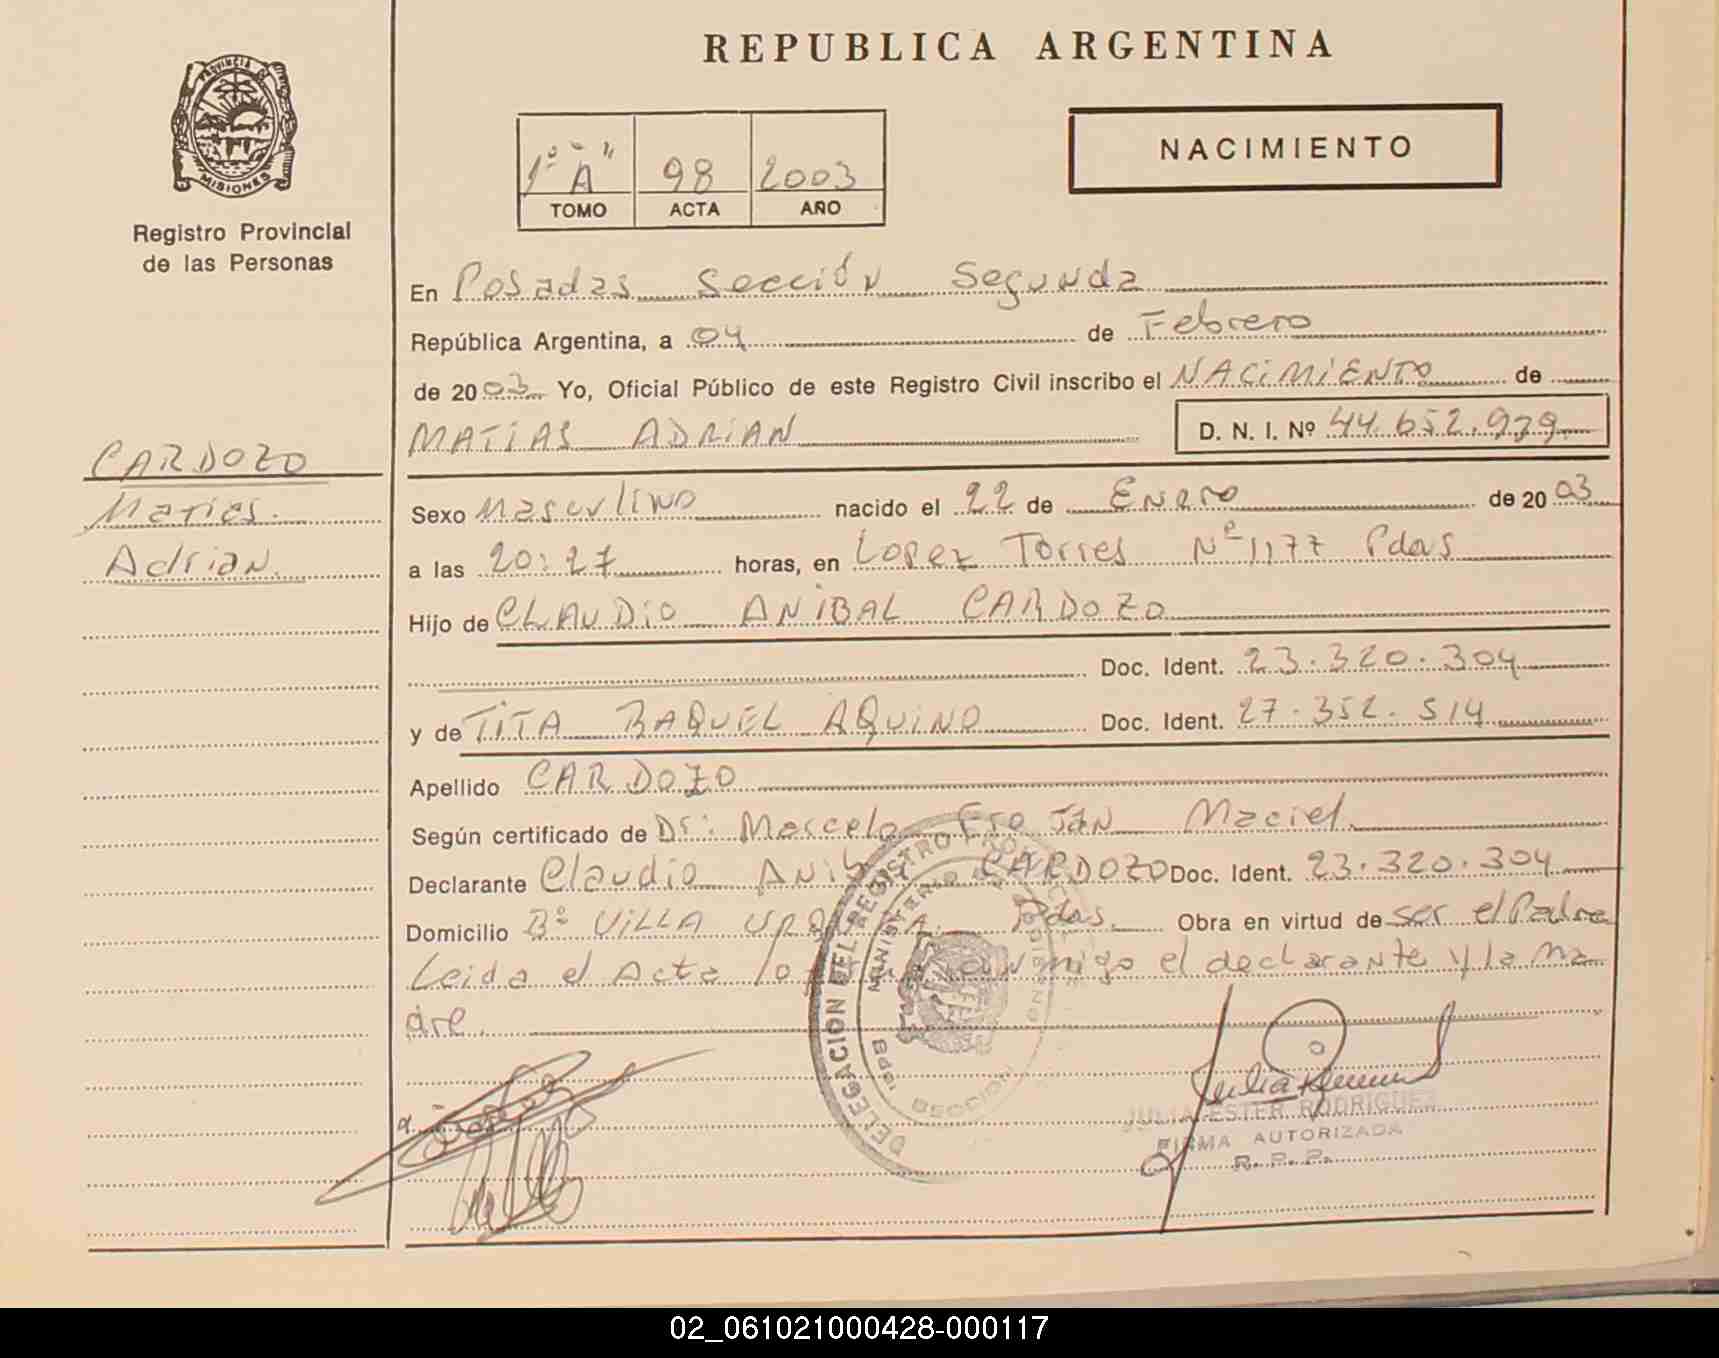 REPUBLICA ARGENTINA
PROVINCIA DE
MISIONES
Registro Provincial
de las Personas
1º "A" 98 2003
TOMO ACTA AÑO
NACIMIENTO
En Posadas Sección Segunda
República Argentina, a 04 de Febrero
de 2003 Yo, Oficial Público de este Registro Civil inscribo el NACIMIENTO de
MATIAS ADRIAN D. N. I. Nº 44.652.979
CARDOZO
Matias
Adrian
Sexo Masculino nacido el 22 de Enero de 2003
a las 20:27 horas, en Lopez Torres Nº 1177 Pdas
Hijo de CLAUDIO ANIBAL CARDOZO
Doc. Ident. 23.320.304
y de TITA RAQUEL AQUINO Doc. Ident. 27.352.514
Apellido CARDOZO
Según certificado de Dr: Marcelo Maciel
Declarante Claudio Anibal CARDOZO Doc. Ident. 23.320.304
Domicilio Bº VILLA URQUIZA Pdas. Obra en virtud de ser el Padre
Leida el Acta conmigo el declarante y la Ma
dre.
DELEGACION DEL REGISTRO PROVINCIAL
MINISTERIO DE GOBIERNO
SECCION
JULIA ESTER RODRIGUEZ
FIRMA AUTORIZADA
R. P. P.
02_061021000428-000117